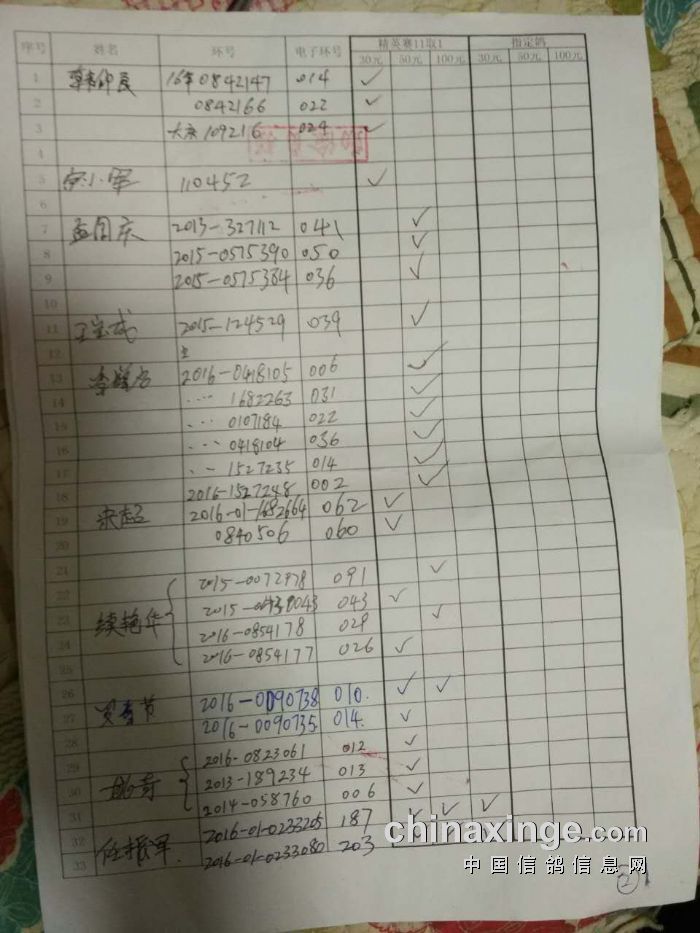 序号 姓名 环号 电子环号 精英赛11取1 指定鸽
30元 50元 100元 30元 50元 100元
1 16年0842147 014 ✓
2 0842166 022 ✓
3 大庆109216 024 ✓
4
5 小军 110452 ✓
6
7 孟国庆 2013-327112 041 ✓
8 2015-0575390 050 ✓
9 2015-0575384 036 ✓
10
11 王宝成 2015-124529 039 ✓
12
13 2016-0418105 006 ✓
14 1682263 031 ✓
15 0107184 022 ✓
16 0418104 036 ✓
17 1527235 014 ✓
18 2016-1527248 002 ✓
19 宋超 2016-01-1682664 062 ✓
20 0840506 060 ✓
21
22 2015-0072978 091 ✓
23 续艳华 2015- 043 ✓
24 2016-0854178 029 ✓
25 2016-0854177 026 ✓
26
27 2016-0090738 010. ✓ ✓
28 2016-0090735 014. ✓
29 2016-0823061 012 ✓
30 2013-189234 013 ✓
31 2014-058760 006 ✓
32 任振军. 2016-01-0233205 187 ✓ ✓ ✓
33 2016-01-0233080 203
chinaxinge.com
中国信鸽信息网
②